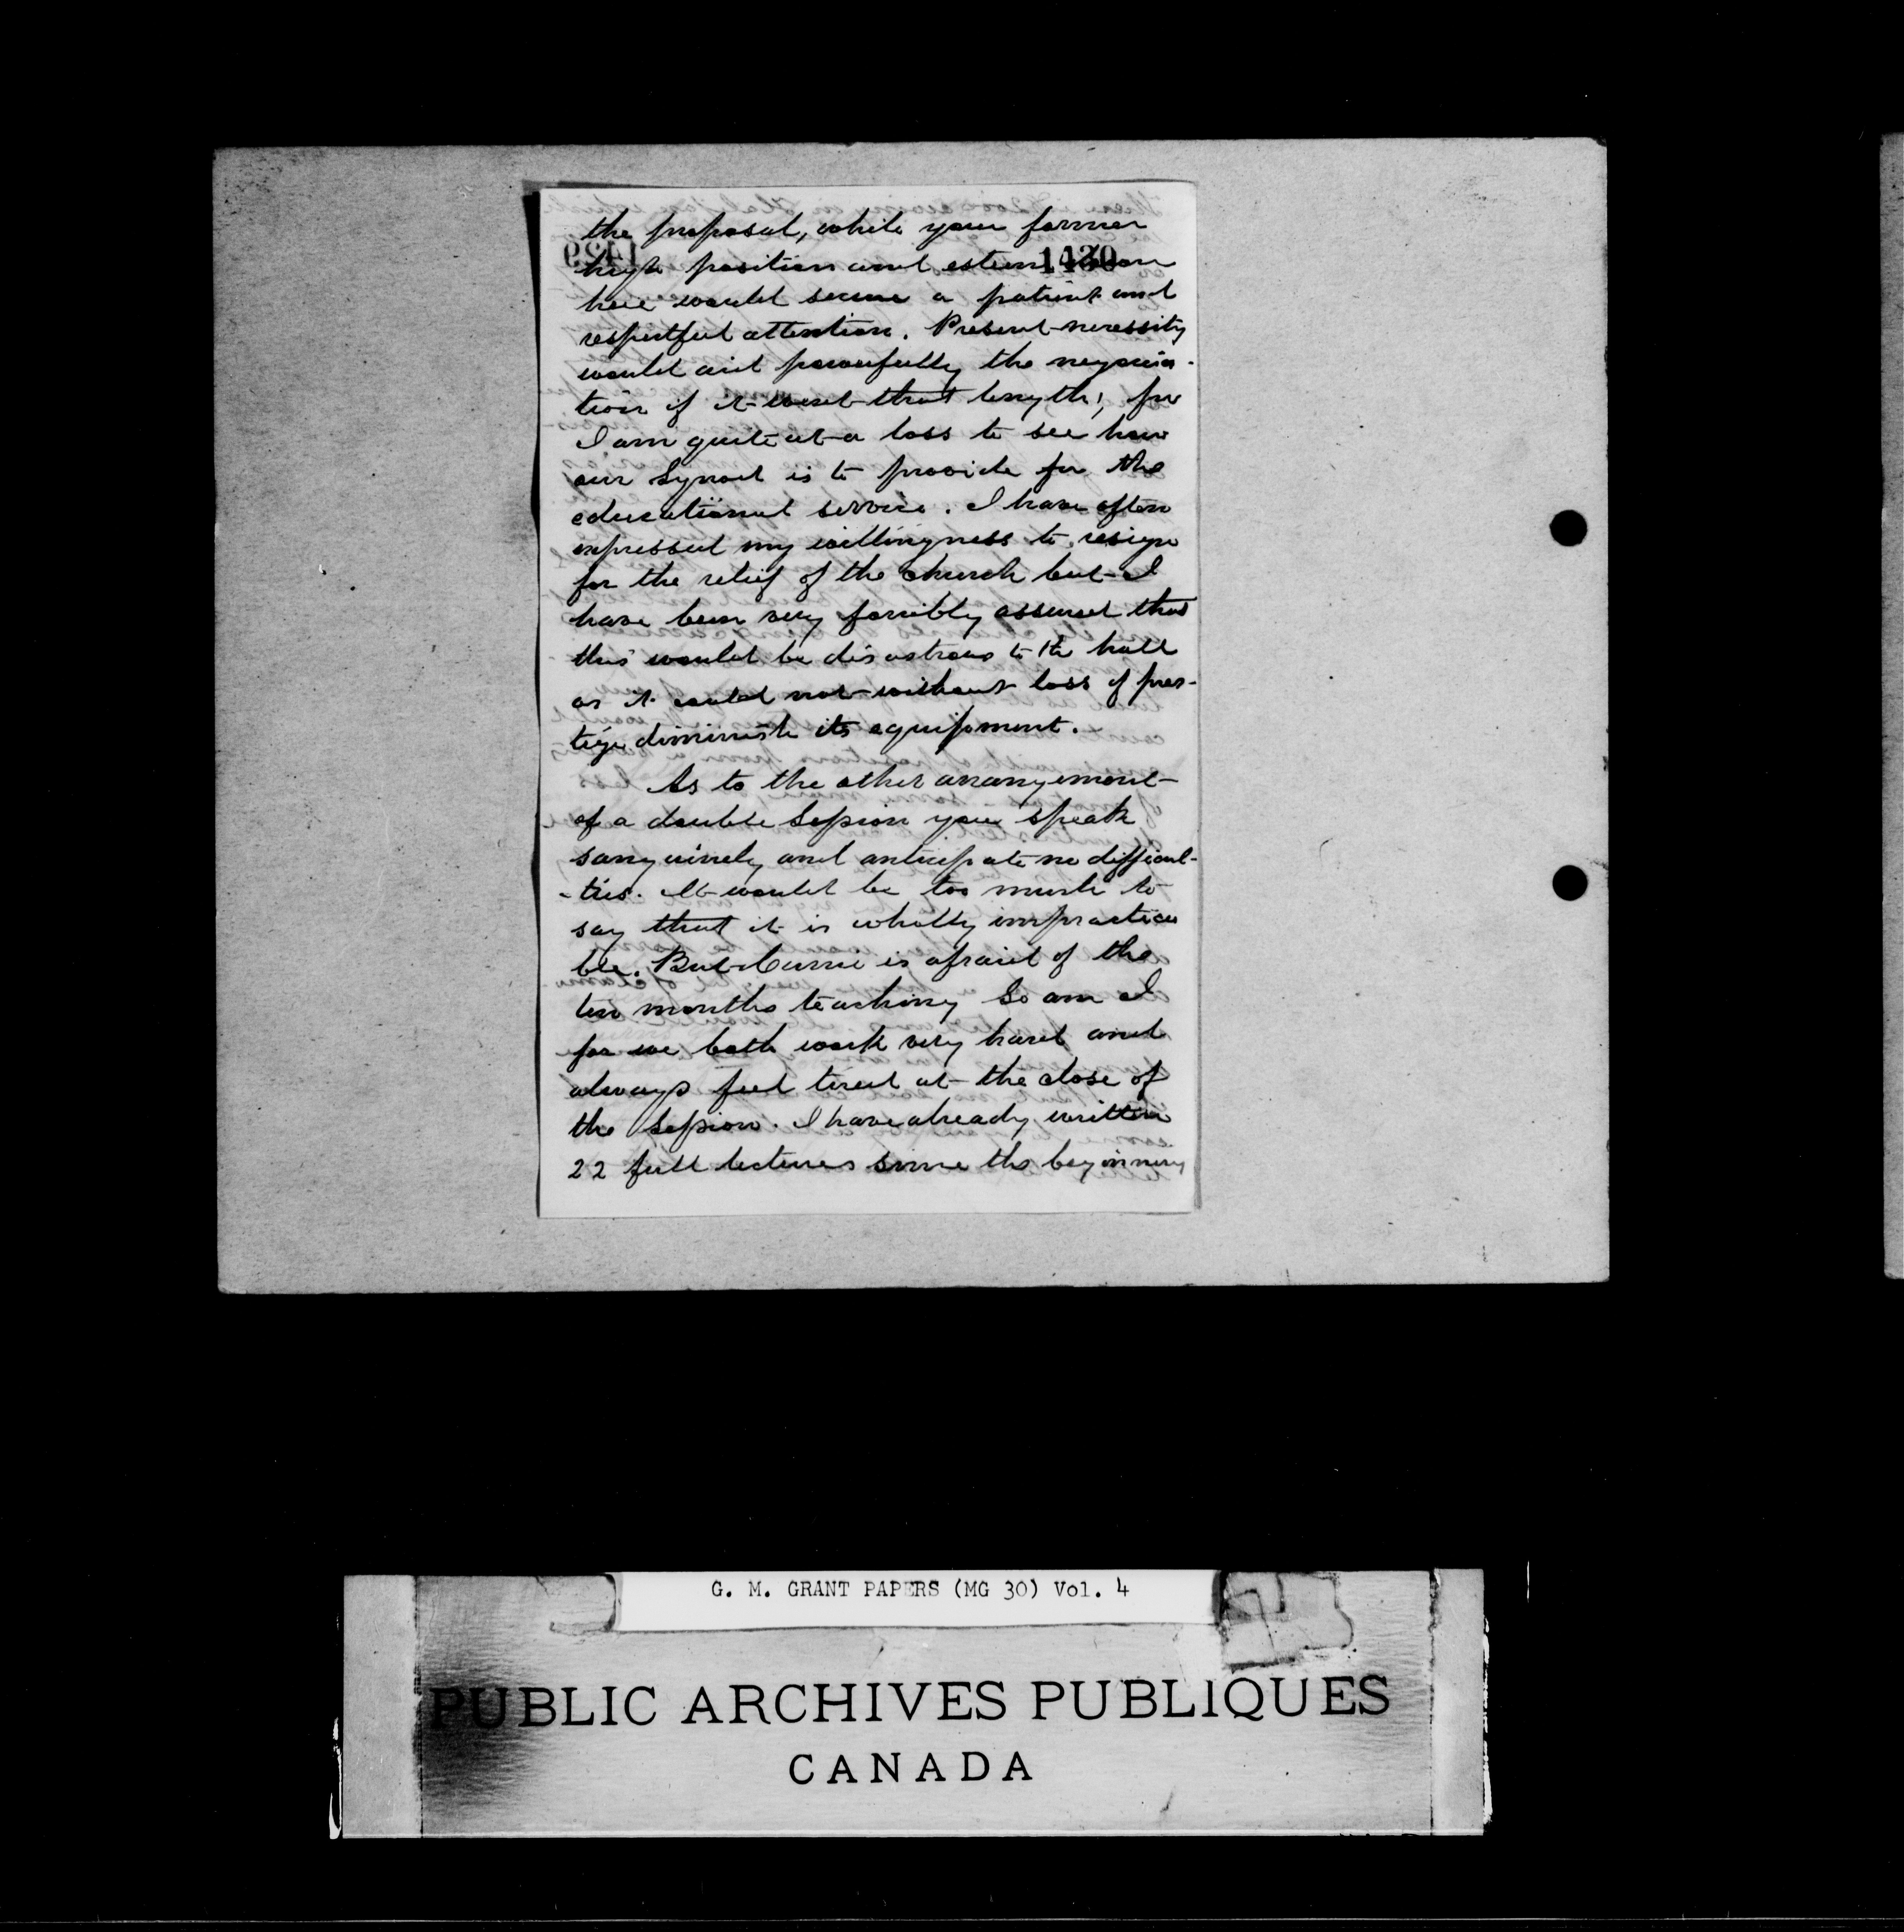 the proposal, while your former
high position and esteem
1430
here would secure a patient and
respectful attention. Present necessity
would aid powerfully the negocia-
tion if it went that length; for
I am quite at a loss to see how
our Synod is to provide for the
educational service. I have often
expressed my willingness to resign
for the relief of the church but I
have been very forcibly assured that
this would be disastrous to the hall
as it could not without loss of pres-
tige diminish its equipment.
As to the other arrangement
of a double Session you speak
sanguinely and anticipate no difficul-
-ties. It would be too much to
say that it is wholly impractica
ble. But Currie is afraid of the
ten months teaching So am I
for we both work very hard and
always feel tired at the close of
the Session. I have already written
22 full lectures since the beginning
G. M. GRANT PAPERS (MG 30) Vol. 4
PUBLIC ARCHIVES PUBLIQUES
CANADA